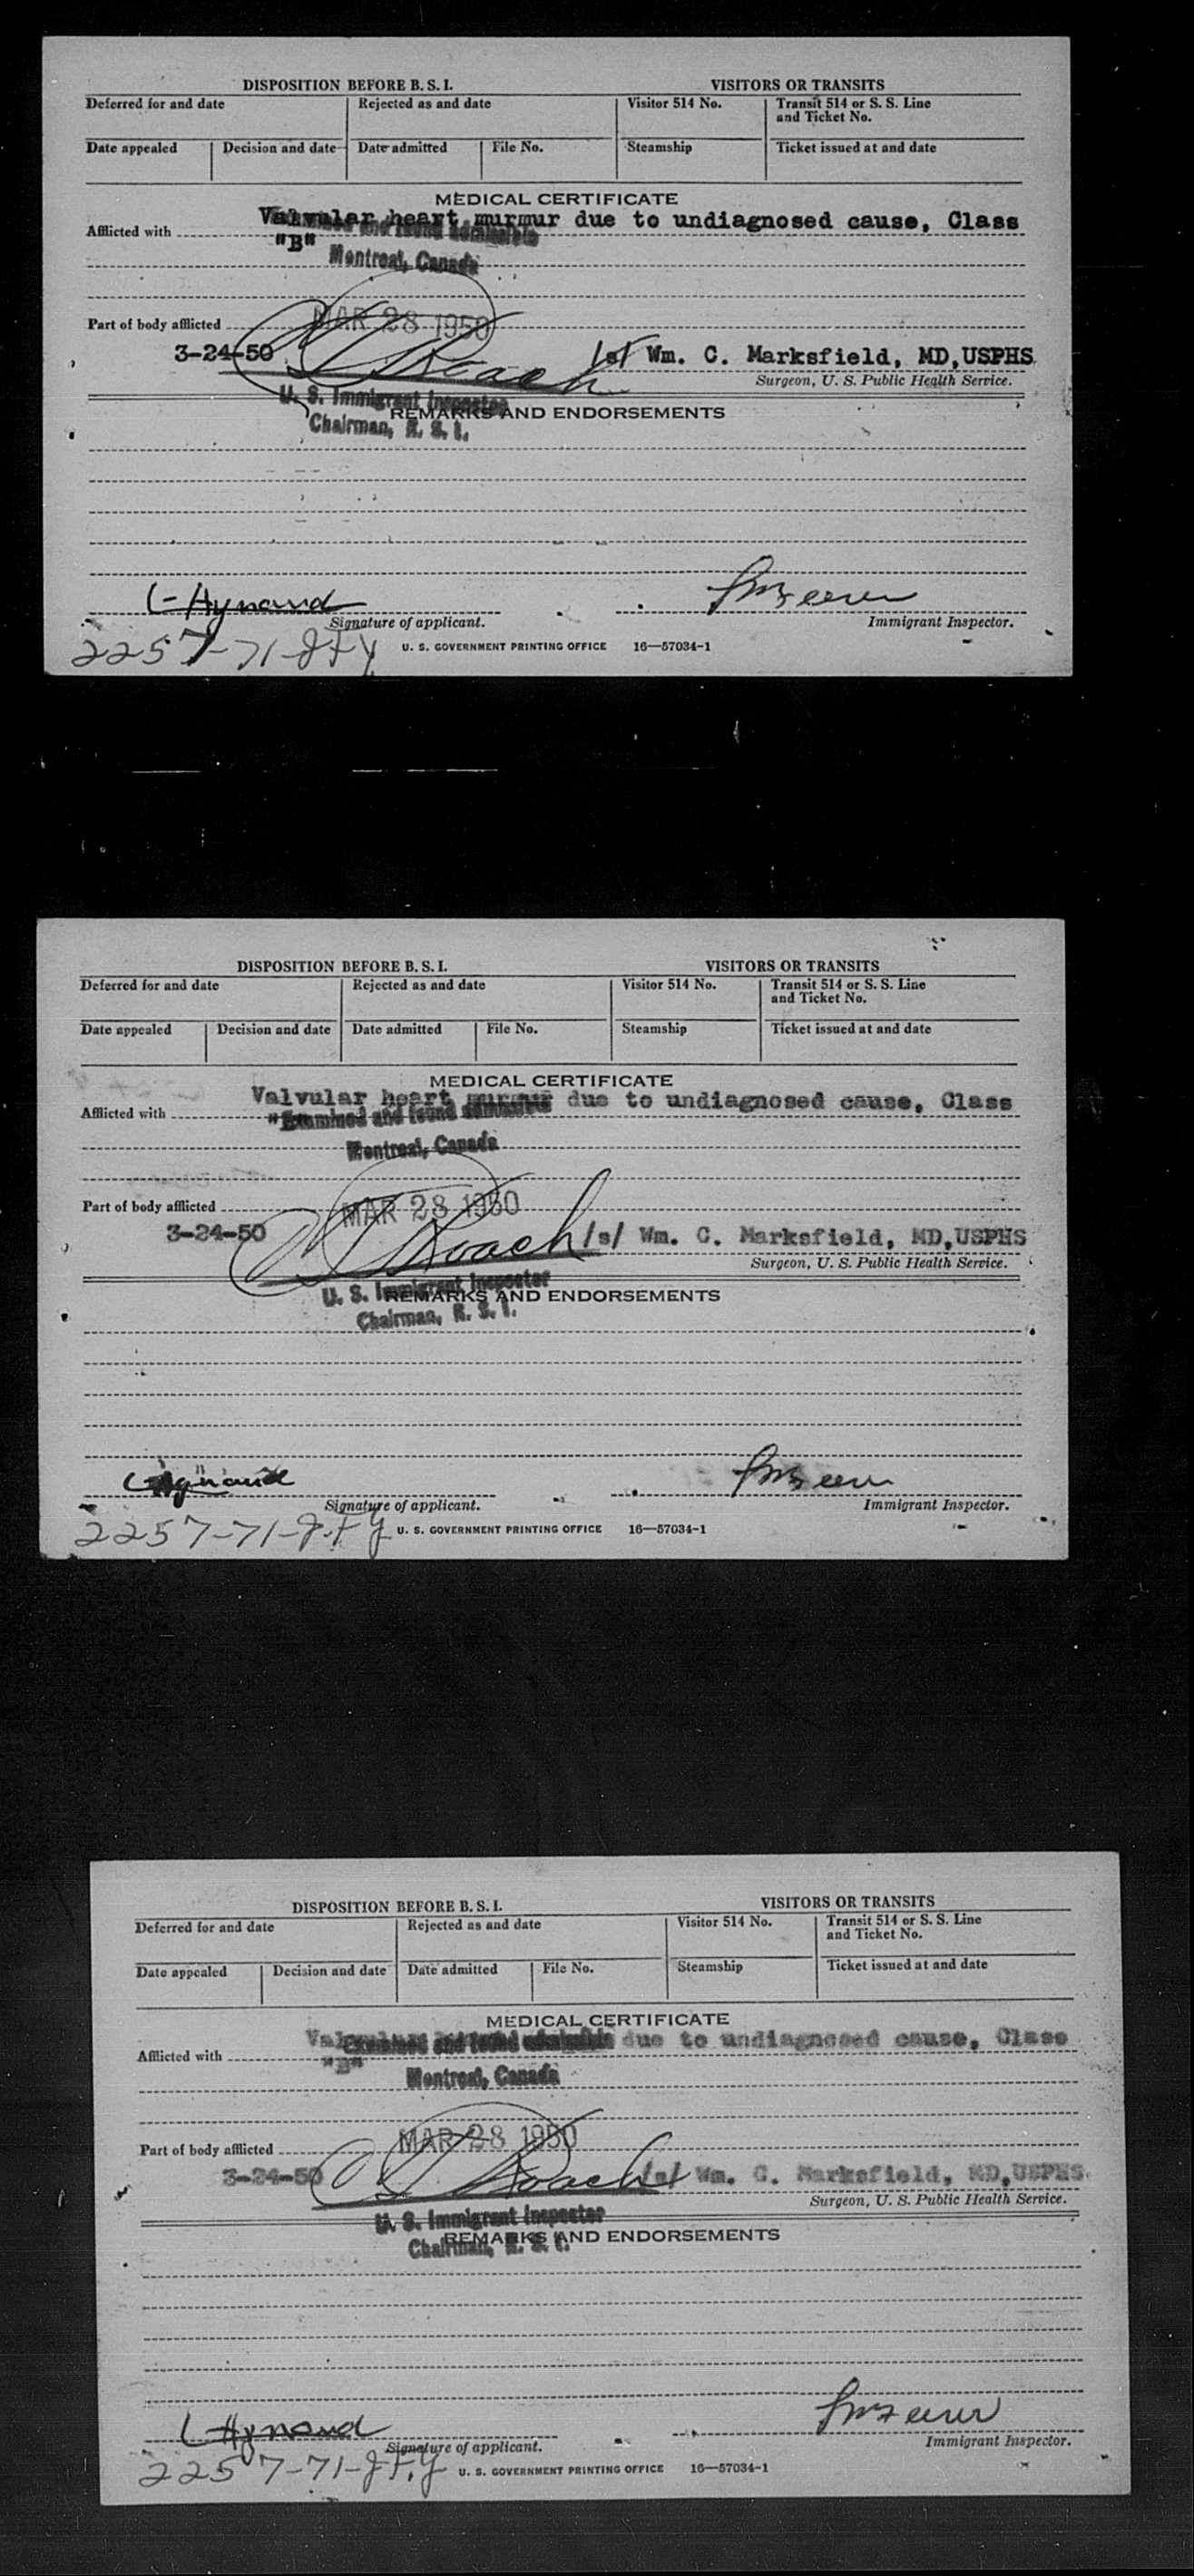 DISPOSITION BEFORE B. S. I. VISITORS OR TRANSITS
Deferred for and date Rejected as and date Visitor 514 No. Transit 514 or S. S. Line
and Ticket No.
Date appealed Decision and date Date admitted File No. Steamship Ticket issued at and date
MEDICAL CERTIFICATE
Afflicted with Valvular heart murmur due to undiagnosed cause, Class
"B"
and found admissible
Montreal, Canada
MAR 28 1950
Part of body afflicted
3-24-50 Roach /s/ Wm. C. Marksfield, MD,USPHS
Surgeon, U. S. Public Health Service.
U. S. Immigrant Inspector
REMARKS AND ENDORSEMENTS
Chairman, B. S. I.
Signature of applicant. Immigrant Inspector.
2257-71
U. S. GOVERNMENT PRINTING OFFICE 16—57034-1
DISPOSITION BEFORE B. S. I. VISITORS OR TRANSITS
Deferred for and date Rejected as and date Visitor 514 No. Transit 514 or S. S. Line
and Ticket No.
Date appealed Decision and date Date admitted File No. Steamship Ticket issued at and date
MEDICAL CERTIFICATE
Afflicted with Valvular heart murmur due to undiagnosed cause, Class
Examined and found admissible
Montreal, Canada
MAR 28 1950
Part of body afflicted
3-24-50 Roach /s/ Wm. C. Marksfield, MD,USPHS
Surgeon, U. S. Public Health Service.
U. S. Immigrant Inspector
REMARKS AND ENDORSEMENTS
Chairman, B. S. I.
Signature of applicant. Immigrant Inspector.
2257-71
U. S. GOVERNMENT PRINTING OFFICE 16—57034-1
DISPOSITION BEFORE B. S. I. VISITORS OR TRANSITS
Deferred for and date Rejected as and date Visitor 514 No. Transit 514 or S. S. Line
and Ticket No.
Date appealed Decision and date Date admitted File No. Steamship Ticket issued at and date
MEDICAL CERTIFICATE
Afflicted with due to undiagnosed cause, Class
"B"
Examined and found admissible
Montreal, Canada
MAR 28 1950
Part of body afflicted
3-24-50 Roach /s/ Wm. C. Marksfield, MD,USPHS
Surgeon, U. S. Public Health Service.
U. S. Immigrant Inspector
REMARKS AND ENDORSEMENTS
Chairman, B. S. I.
Signature of applicant. Immigrant Inspector.
2257-71
U. S. GOVERNMENT PRINTING OFFICE 16—57034-1